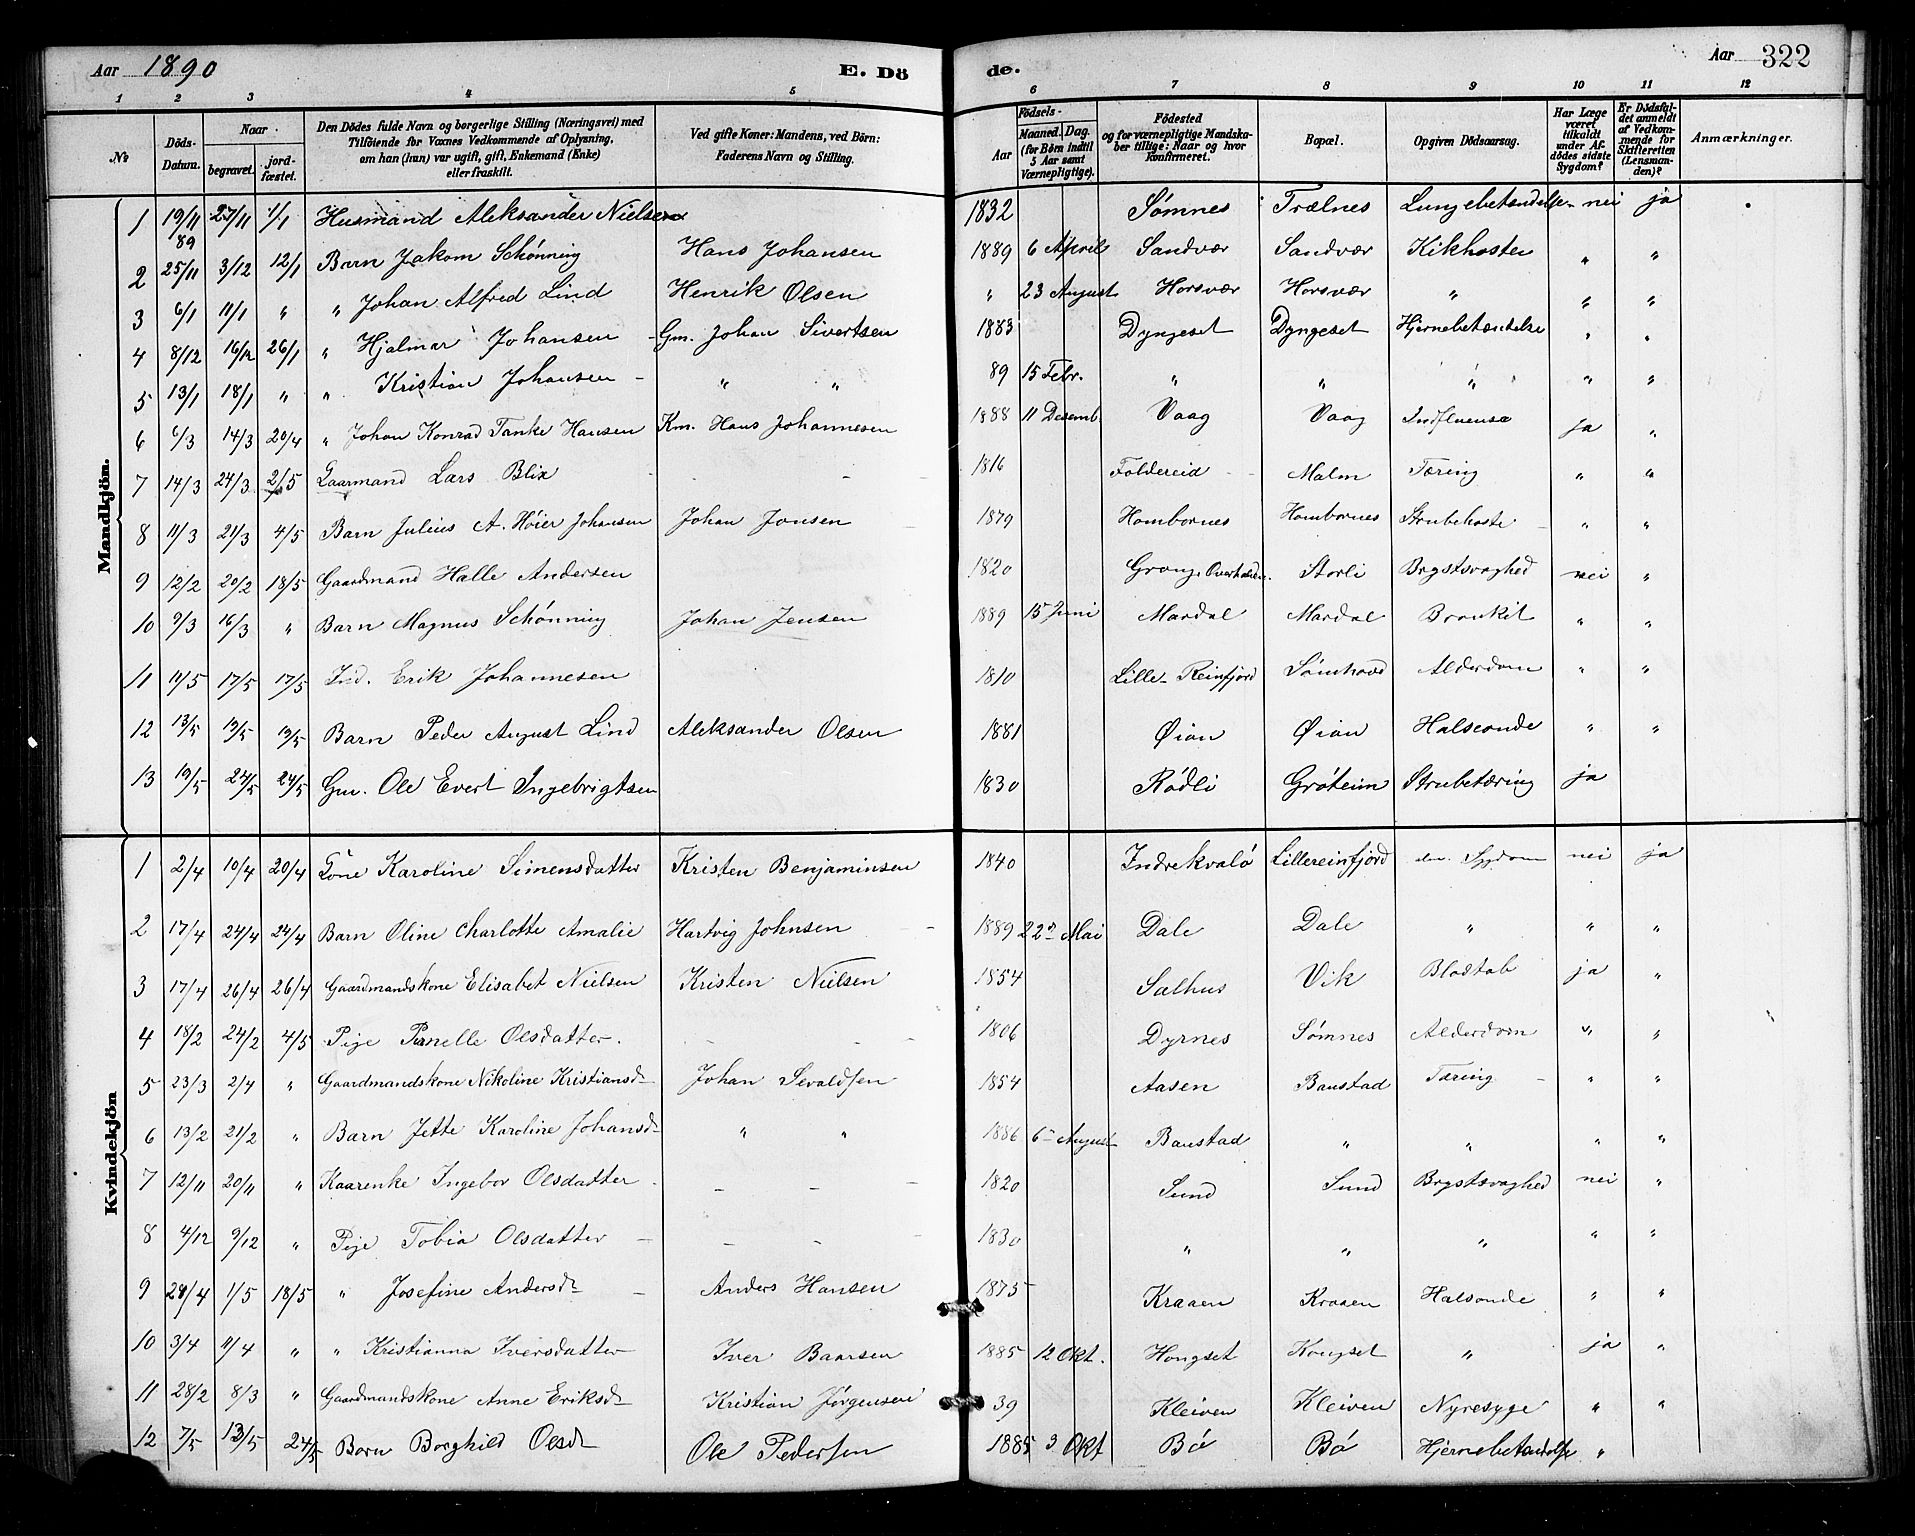 Aar 1890 E. Dö de. Aar 322
1 2 3 4 5 6 7 8 9 10 11 12
No Döds-Datum. Naar begravet. jord-fæstet. Den Dödes fulde Navn og borgerlige Stilling (Næringsvei) med Tilföiende for Voxnes Vedkommende af Oplysning, om han (hun) var ugift, gift, Enkemand (Enke) eller fraskilt. Ved gifte Koner: Mandens, ved Börn: Faderens Navn og Stilling. Födsels- Aar Maaned. Dag. (for Börn indtil 5 Aar samt Værnepligtige). Födested og for værnepligtige Mandska-ber tillige: Naar og hvor Konfirmeret. Bopæl. Opgiven Dödsaarsag. Har Læge været tilkaldt under Af-dödes sidste Sygdom? Er Dödsfal-det anmeldt af Vedkom-mende for Skifteretten (Lensman-den)? Anmærkninger.
Mandkjön.
1 19/11 89 27/11 1/1 Husmand Aleksander Nielsen 1832 Sømnes Trælnes Lungebetændelse nei ja
2 25/11 3/12 12/1 Barn Jakom Schønning Hans Johansen 1889 6 April Sandvær Sandvær Kikhoste " "
3 6/1 11/1 " " Johan Alfred Lind Henrik Olsen " 23 August Horsvær Horsvær " " "
4 8/12 16/12 26/1 " Hjalmar Johansen - Gm. Johan Sivertsen 1883 Dyngeset Dyngeset Hjernebetændelse " "
5 13/1 18/1 " " Kristian Johansen - " " 89 15 Febr. " " " " "
6 6/3 14/3 20/4 " Johan Konrad Tanke Hansen Km. Hans Johannesen 1888 11 Desemb. Vaag Vaag Indfluensa ja "
7 14/3 24/3 2/5 Gaarmand Lars Blix - - 1816 Foldereid - Malm Tæring " "
8 11/3 21/3 4/5 Barn Julius A. Høier Johansen Johan Jonsen 1879 Hombornes Hombornes Strubehoste - " "
9 12/2 20/2 18/5 Gaardmand Halle Andersen 1820 Overhalden Storli Brystsvaghed nei "
10 9/3 16/3 " Barn Magnus Schønning Johan Jensen 1889 15 Juni Mardal Mardal Bronkit " "
11 11/5 17/5 17/5 Ind. Erik Johannesen 1810 Lille-Reinfjord Sømhovd Alderdom " "
12 13/5 19/5 19/5 Barn Peder August Lind Aleksander Olsen 1881 Øian Øian Halsonde " "
13 19/5 24/5 24/5 Gm. Ole Evert Ingebrigtsen 1830 Rødli Grøteim Strubetæring ja
Kvindekjön
1 2/4 10/4 20/4 Karoline Simensdatter Kristen Benjaminsen 1840 Indrekvalø Lillereinfjord Sygdom nei ja
2 17/4 24/4 24/4 Barn Oline Charlotte Amalie Hartvig Johnsen - 1889 22n Mai Dale Dale " " "
3 17/4 26/4 26/4 Gaardmandskone Elisabet Nielsen Kristen Nielsen 1854 Salhus Vik Blodtab ja "
4 18/2 24/2 4/5 Pige Pernelle Olsdatter. - - 1806 Dyrnes Sømnes Alderdom " "
5 23/3 2/4 " Gaardmandskone Nikoline Kristiansd- Johan Sevaldsen 1854 Aasen Baustad Tæring - " "
6 13/2 21/2 " Barn Jette Karoline Johansd- " " 1886 6- August Baustad " " " "
7 12/11 20/11 " Kaarenke Ingebor Olsdatter - - - 1820 Sund Sund Brystsvaghed nei "
8 4/12 9/12 " Pige Tobia Olsdatter - - - 1830 " " " " "
9 28/4 1/5 18/5 " Josefine Andersd- - Anders Hansen 1875 Kraaen Kraaen Halsonde " "
10 3/4 11/4 " " Kristianna Iversdatter Iver Baarsen 1885 12 Okt. Hongset Kongset " ja "
11 28/2 8/3 " Gaardmandskone Anne Eriksd- Kristian Jørgensen 39 Kleiven Kleiven Nyresyge " "
12 7/5 13/5 24/5 Barn Borghild Olsd- Ole Pedersen 1885 3 Okt Bø Bø Hjernebetændelse "